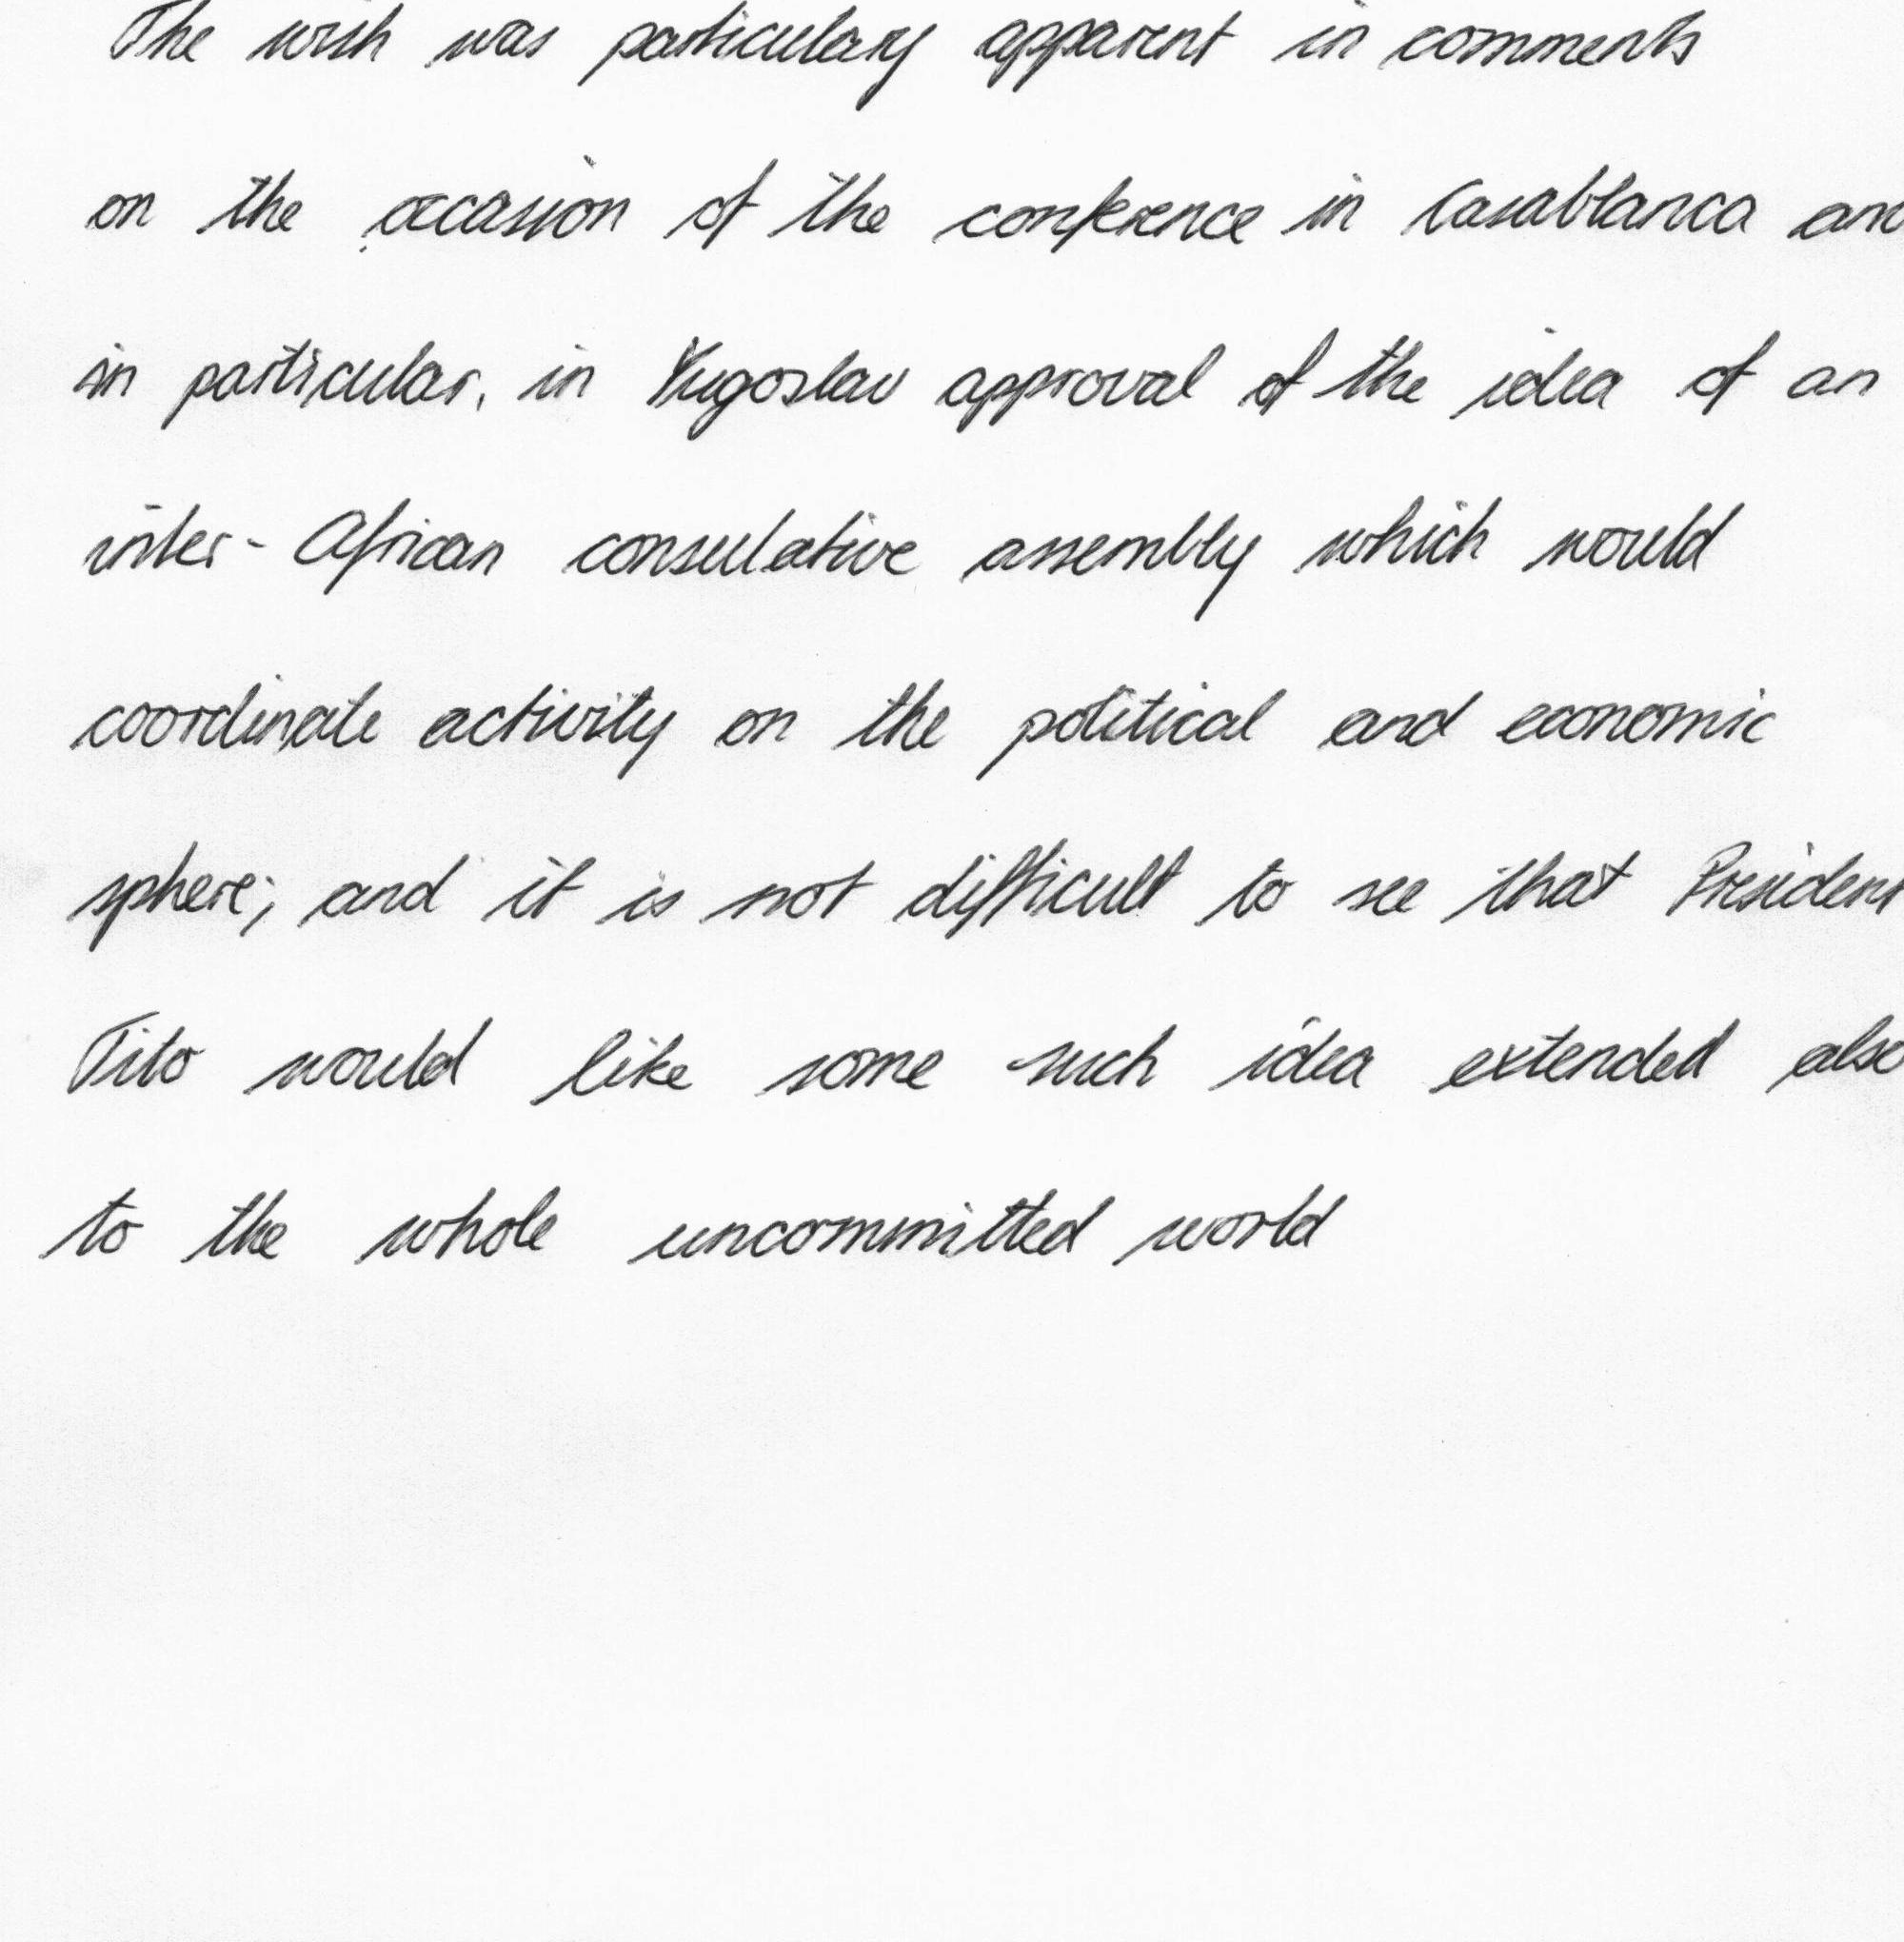 The wish was particulary apparent in comments
on the occasion of the conference in Casablanca and
in particular, in Yugoslav approval of the idea of an
inter-African consulative assembly which would
coordinate activity on the political and economic
sphere; and it is not difficult to see that President
Tito would like some such idea extended also
to the whole uncommitted world